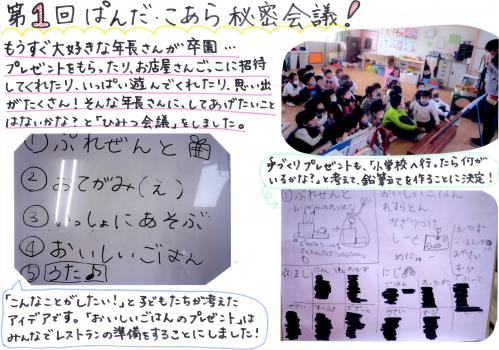 第1回 ぱんだ・こあら 秘密会議！
もうすぐ大好きな年長さんが卒園…
プレゼントをもらったり、お店屋さんごっこに招待
してくれたり、いっぱい遊んでくれたり、思い出
がたくさん！そんな年長さんに、してあげたいこと
はないかな？と「ひみつ会議」をしました。
①ぷれぜんと
②おてがみ(え)
③いっしょにあそぶ
④おいしいごはん
⑤うた♪
「こんなことがしたい！」と子どもたちが考えた
アイデアです。「おいしいごはんのプレゼント」は
みんなでレストランの準備をすることにしました！
手づくりプレゼントも、「小学校へ行ったら何が
いるかな？」と考えて、鉛筆立てを作ることに決定！
①ぷれぜんと
おいしいごはん
れすとらん
かざりつけ
しーと
めにゅー
ほし
ごはん
おかず
にじ
ごはん
やさい
すーぷ
でざーと